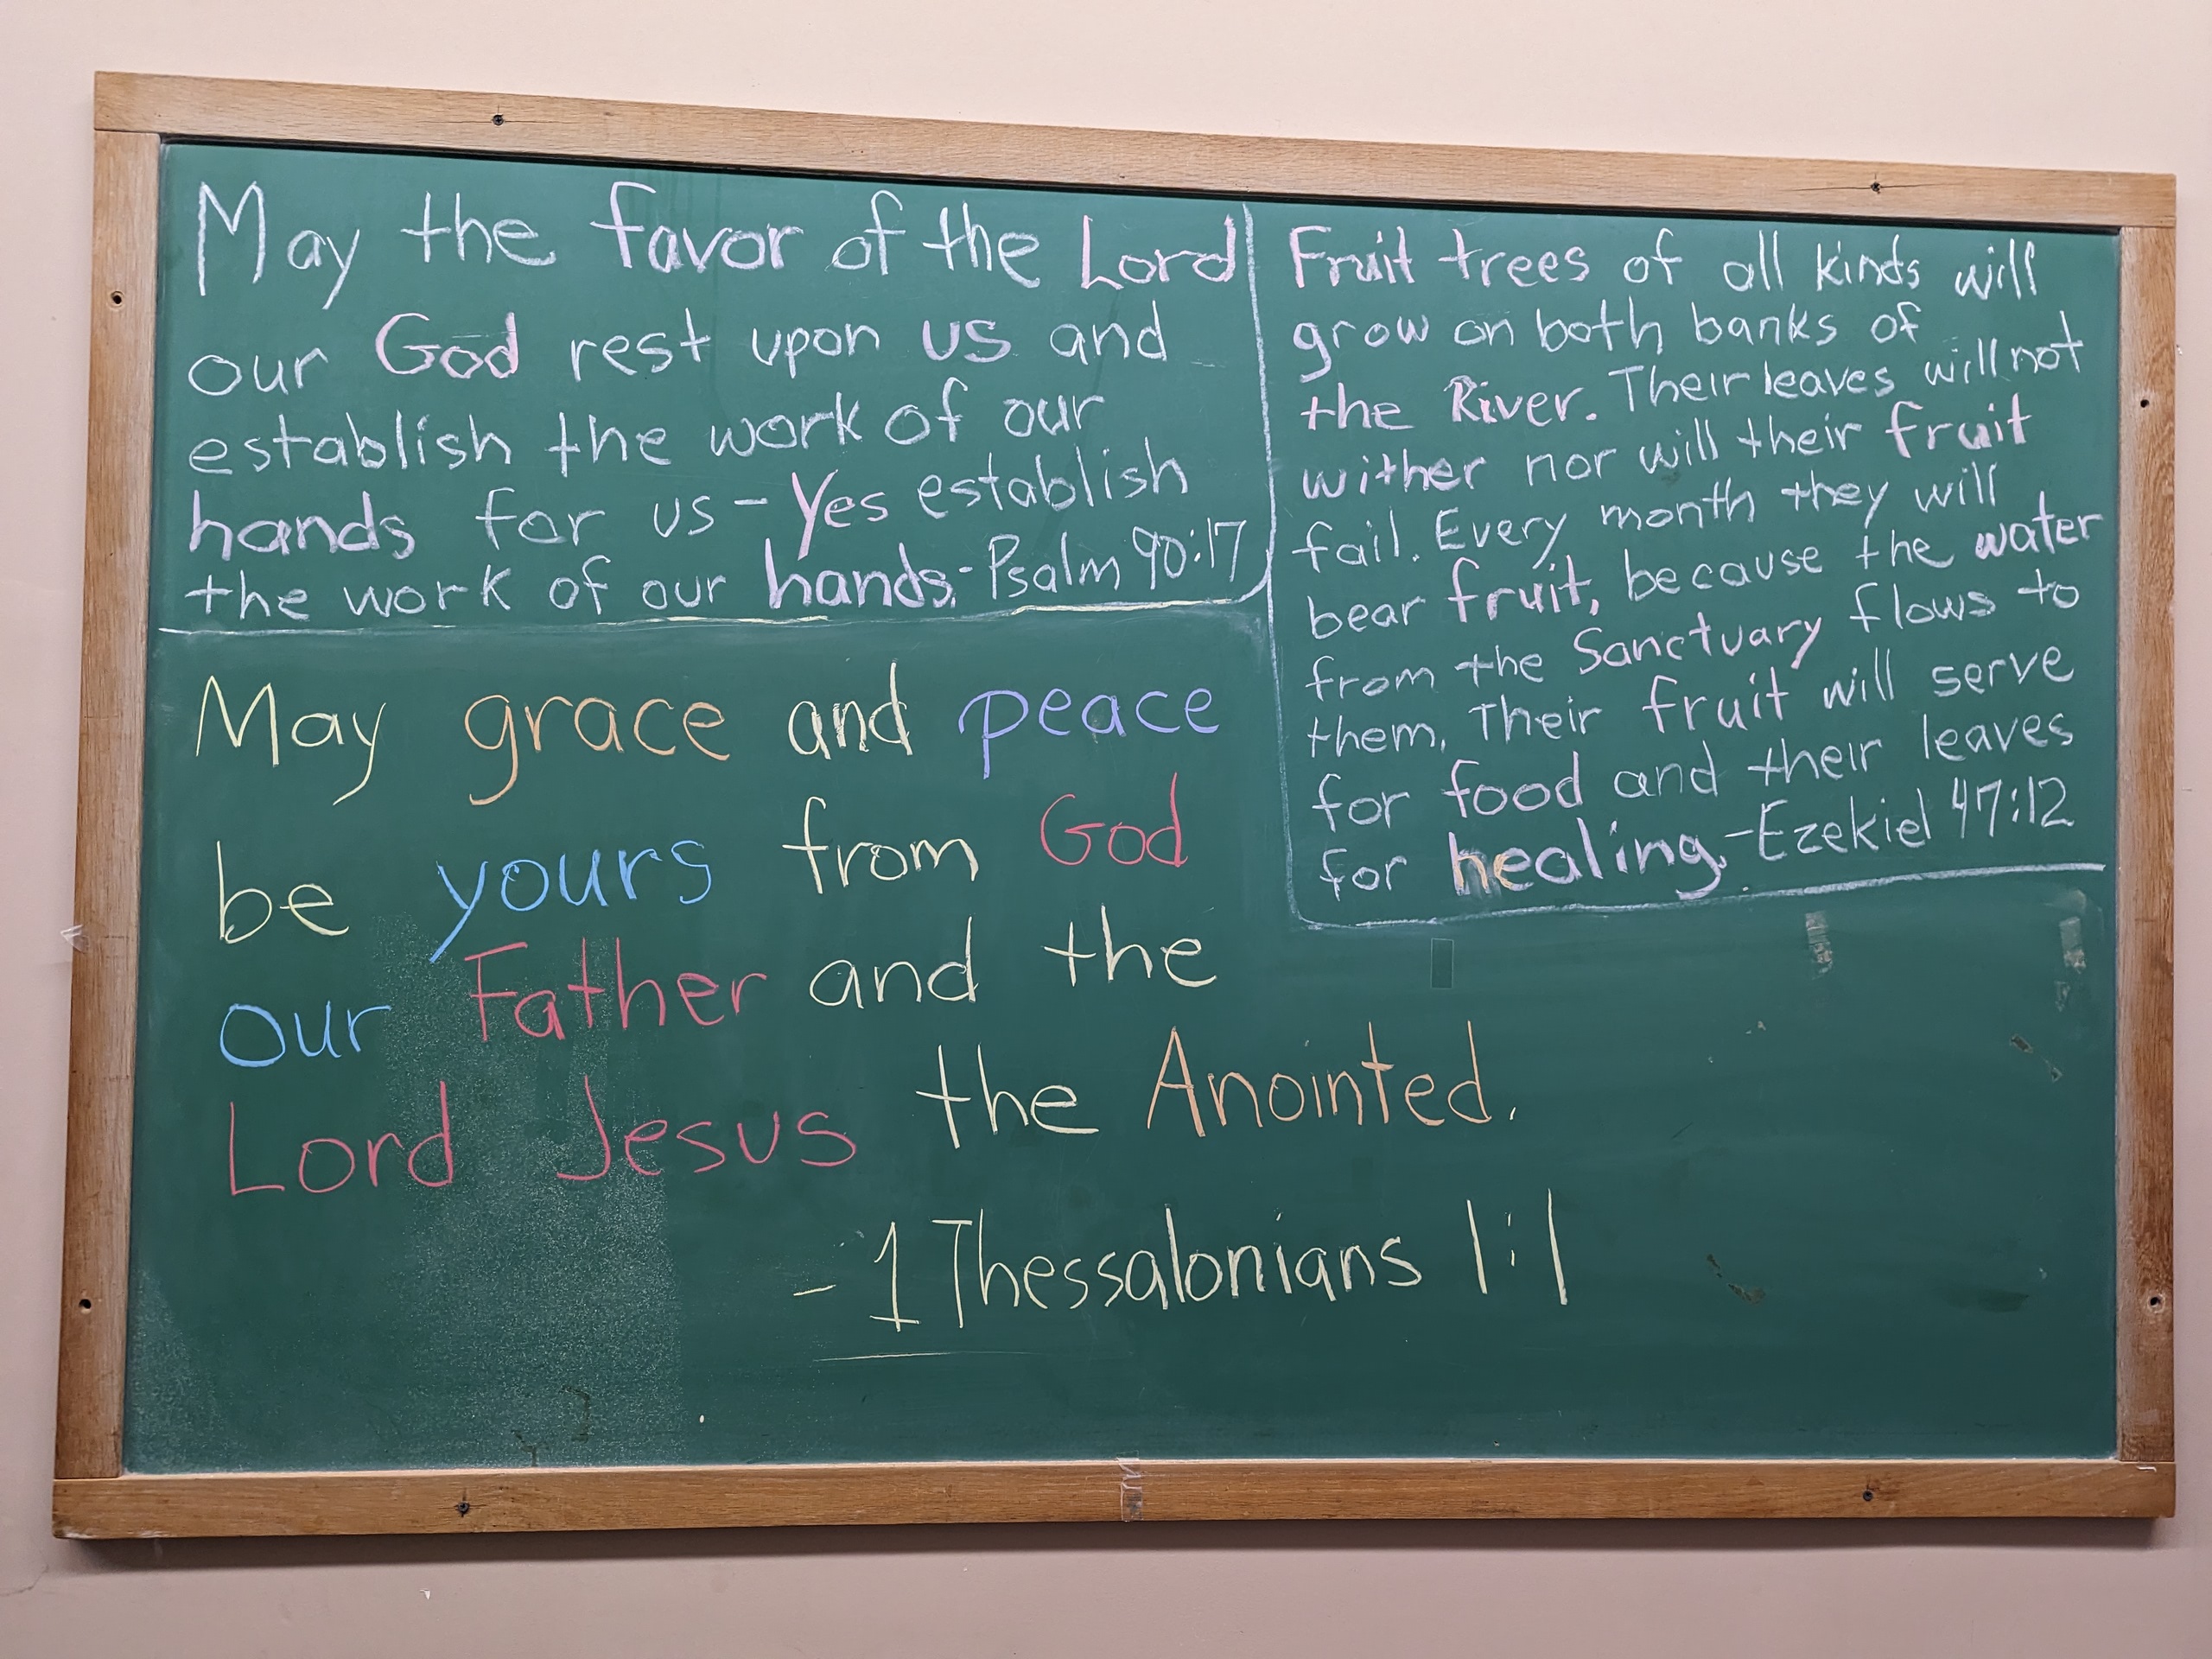 May the favor of the Lord
our God rest upon us and
establish the work of our
hands for us - Yes establish
the work of our hands. - Psalm 90:17
Fruit trees of all kinds will
grow on both banks of
the River. Their leaves will not
wither nor will their fruit
fail. Every month they will
bear fruit, because the water
from the Sanctuary flows to
them. Their fruit will serve
for food and their leaves
for healing. - Ezekiel 47:12
May grace and peace
be yours from God
our Father and the
Lord Jesus the Anointed.
- 1 Thessalonians 1:1